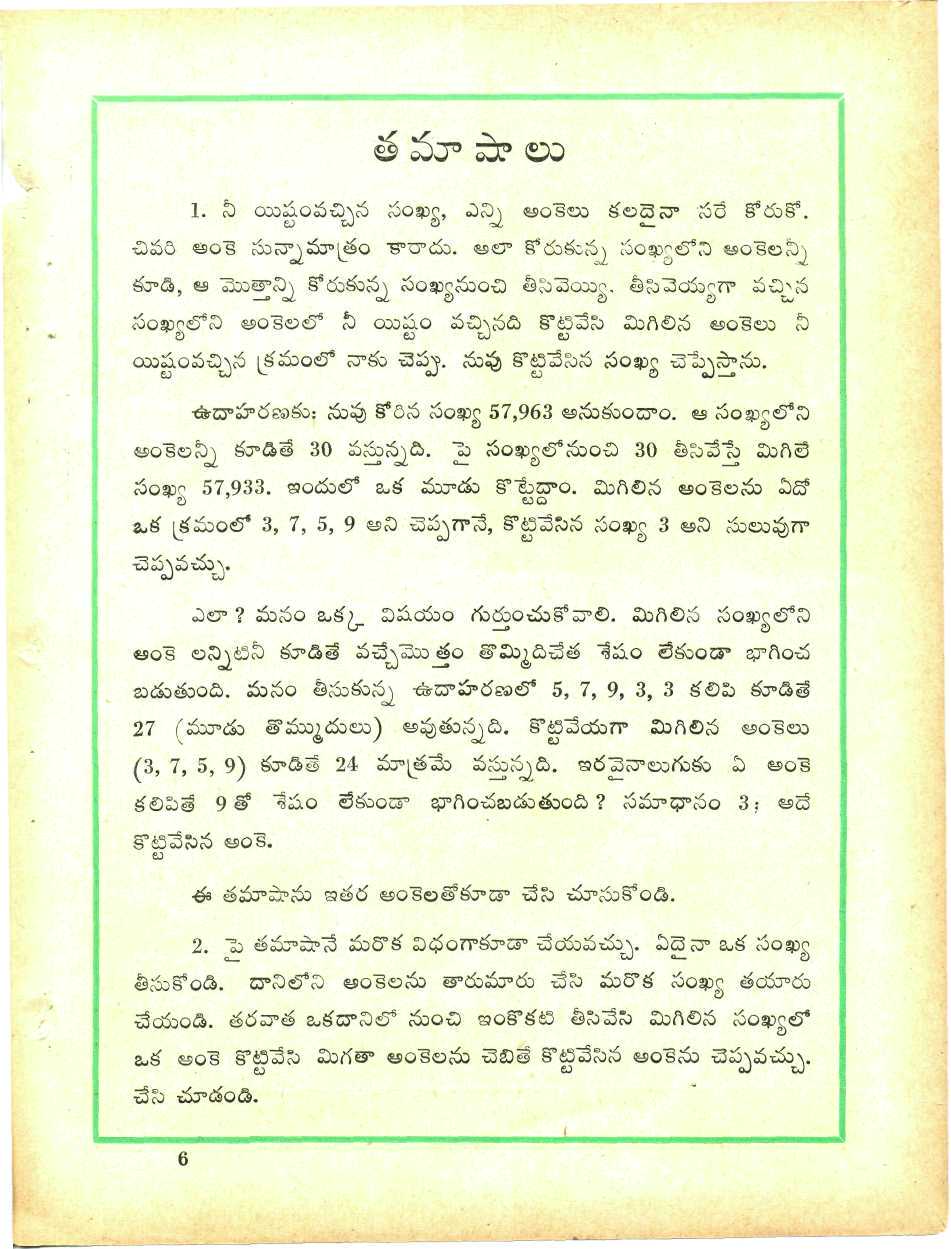 తమాషాలు
1. నీ యిష్టంవచ్చిన సంఖ్య, ఎన్ని అంకెలు కలదైనా సరే కోరుకో.
చివరి అంకె సున్నామాత్రం కారాదు. అలా కోరుకున్న సంఖ్యలోని అంకెలన్నీ
కూడి, ఆ మొత్తాన్ని కోరుకున్న సంఖ్యనుంచి తీసివెయ్యి. తీసివెయ్యగా వచ్చిన
సంఖ్యలోని అంకెలలో నీ యిష్టం వచ్చినది కొట్టివేసి మిగిలిన అంకెలు నీ
యిష్టంవచ్చిన క్రమంలో నాకు చెప్పు. నువు కొట్టివేసిన సంఖ్య చెప్పేస్తాను.
ఉదాహరణకు: నువు కోరిన సంఖ్య 57,963 అనుకుందాం. ఆ సంఖ్యలోని
అంకెలన్నీ కూడితే 30 వస్తున్నది. పై సంఖ్యలోనుంచి 30 తీసివేస్తే మిగిలే
సంఖ్య 57,933. ఇందులో ఒక మూడు కొట్టేద్దాం. మిగిలిన అంకెలను ఏదో
ఒక క్రమంలో 3, 7, 5, 9 అని చెప్పగానే, కొట్టివేసిన సంఖ్య 3 అని సులువుగా
చెప్పవచ్చు.
ఎలా ? మనం ఒక్క విషయం గుర్తుంచుకోవాలి. మిగిలిన సంఖ్యలోని
అంకె లన్నిటినీ కూడితే వచ్చేమొత్తం తొమ్మిదిచేత శేషం లేకుండా భాగించ
బడుతుంది. మనం తీసుకున్న ఉదాహరణలో 5, 7, 9, 3, 3 కలిపి కూడితే
27 (మూడు తొమ్ముదులు) అవుతున్నది. కొట్టివేయగా మిగిలిన అంకెలు
(3, 7, 5, 9) కూడితే 24 మాత్రమే వస్తున్నది. ఇరవైనాలుగుకు ఏ అంకె
కలిపితే 9 తో శేషం లేకుండా భాగించబడుతుంది ? సమాధానం 3; అదే
కొట్టివేసిన అంకె.
ఈ తమాషాను ఇతర అంకెలతోకూడా చేసి చూసుకోండి.
2. పై తమాషానే మరొక విధంగాకూడా చేయవచ్చు. ఏదైనా ఒక సంఖ్య
తీసుకోండి. దానిలోని అంకెలను తారుమారు చేసి మరొక సంఖ్య తయారు
చేయండి. తరవాత ఒకదానిలో నుంచి ఇంకొకటి తీసివేసి మిగిలిన సంఖ్యలో
ఒక అంకె కొట్టివేసి మిగతా అంకెలను చెబితే కొట్టివేసిన అంకెను చెప్పవచ్చు.
చేసి చూడండి.
6